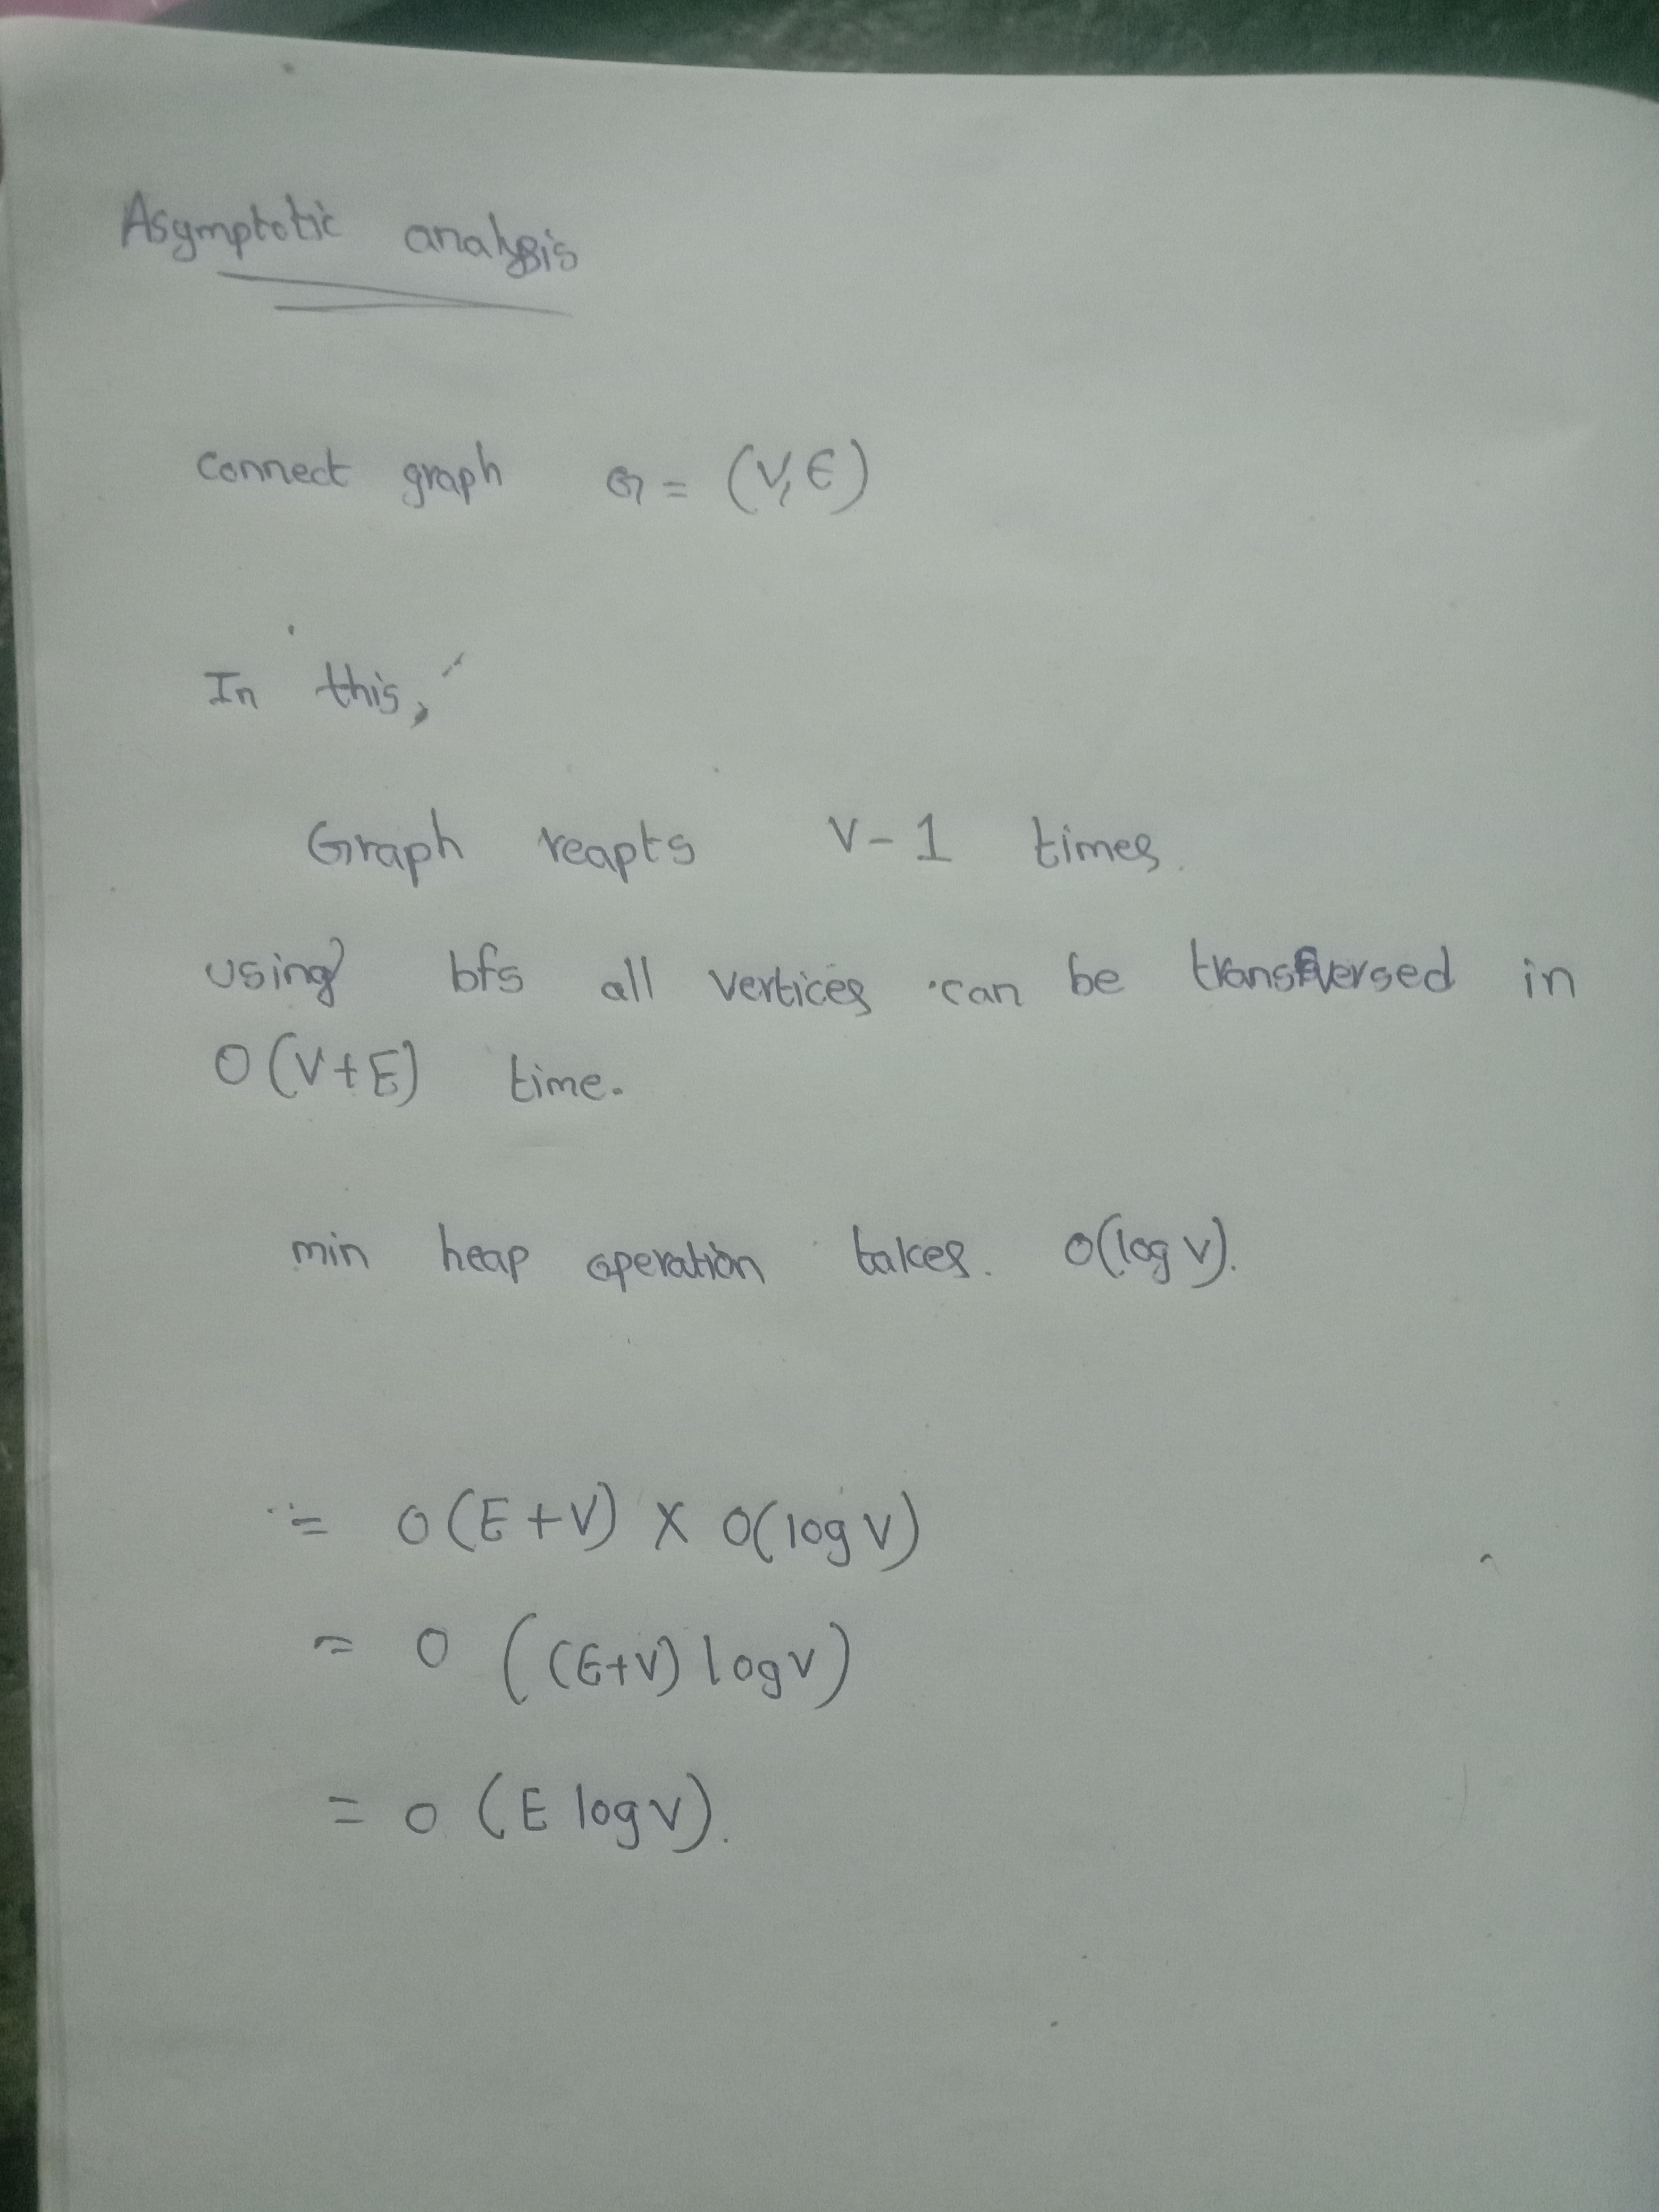 Asymptotic analysis
connect graph G = (V, E)
In this,
Graph reapts V-1 times.
using bfs all vertices can be transversed in
O(V+E) time.
min heap operation takes. O(log V).
= O(E+V) X O(log V)
= O ((E+V) log V)
= O (E log V).